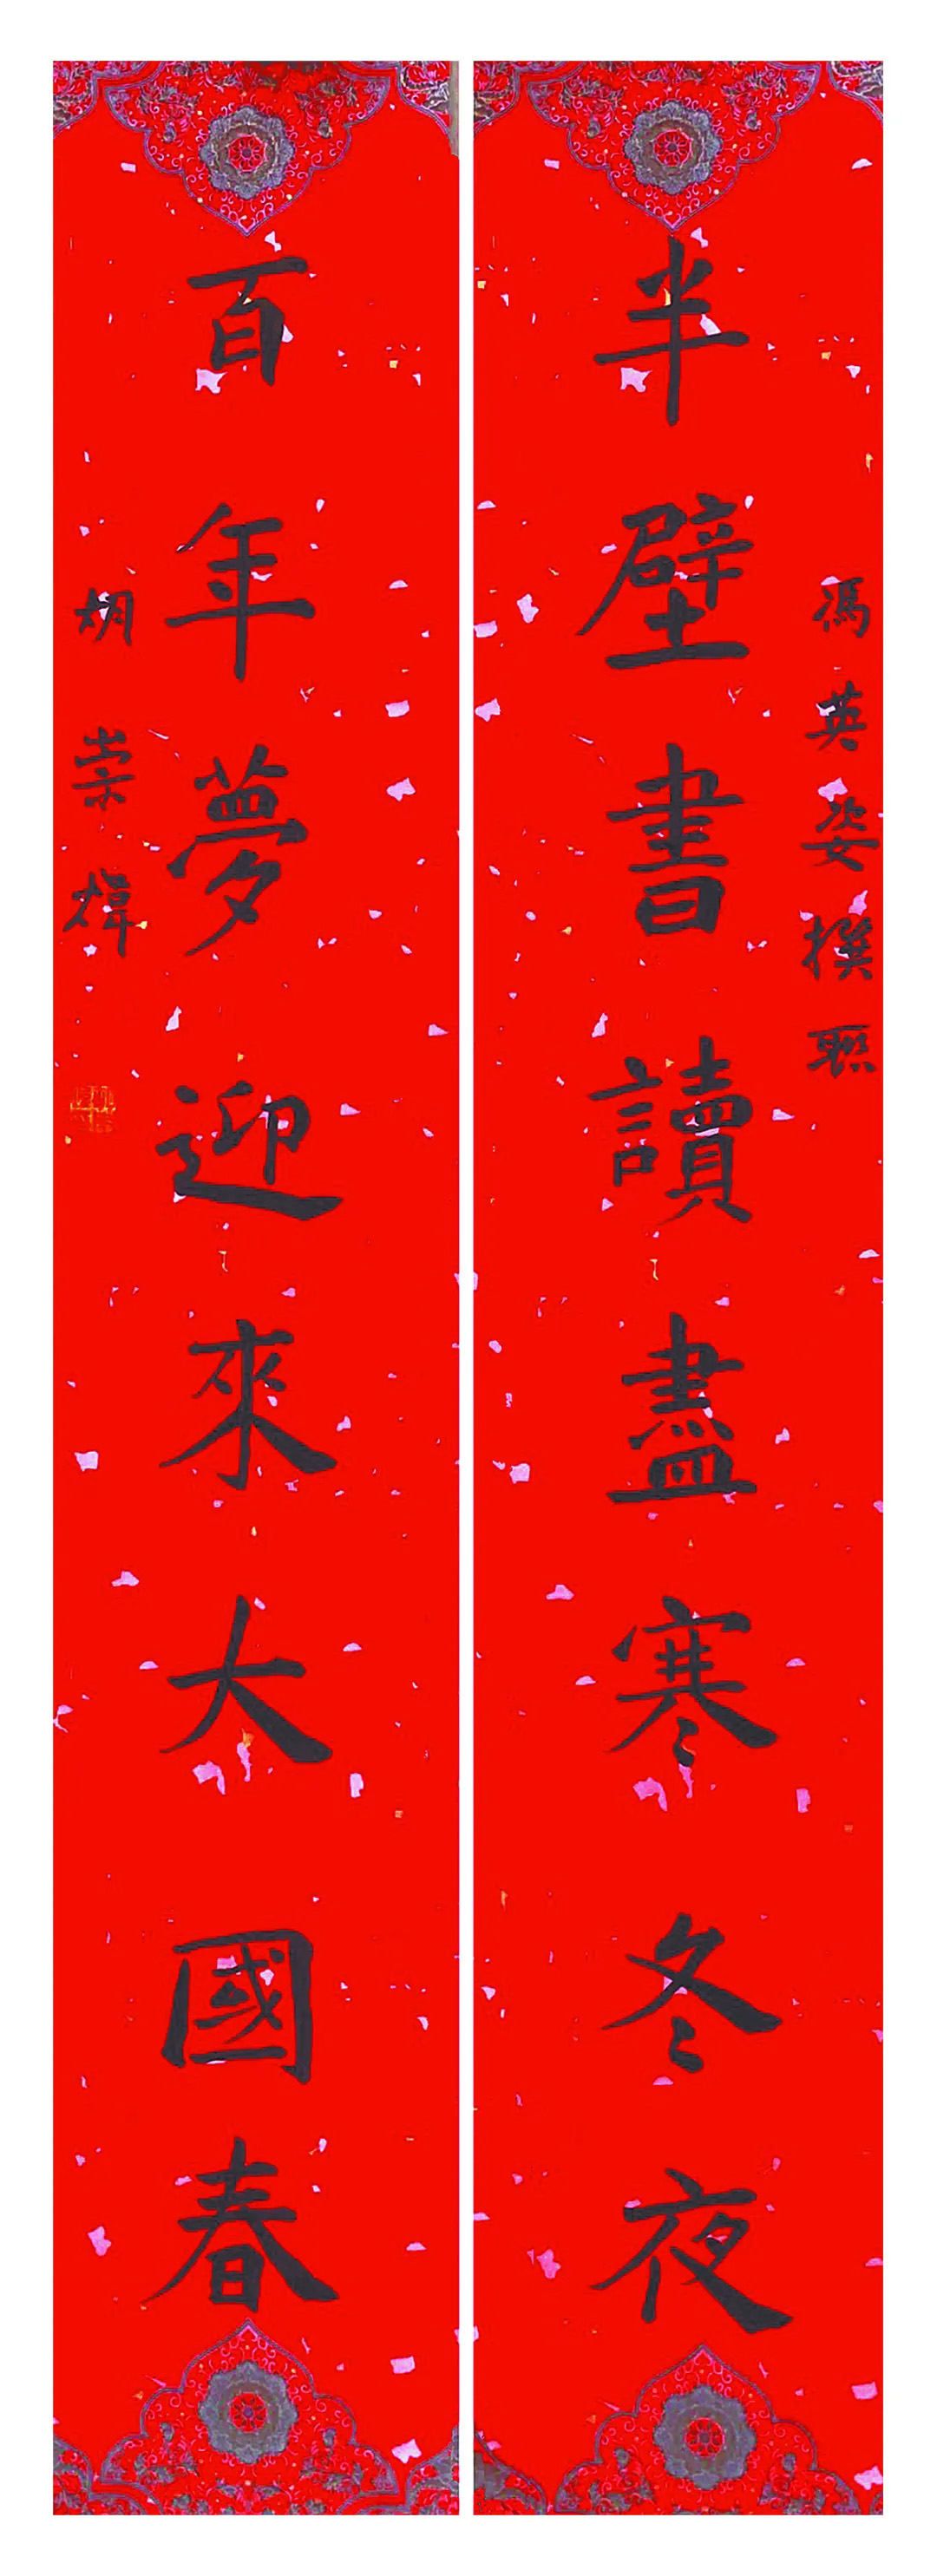 馮英姿撰聯
半壁書讀盡寒冬夜
百年夢迎來大國春
胡崇煒